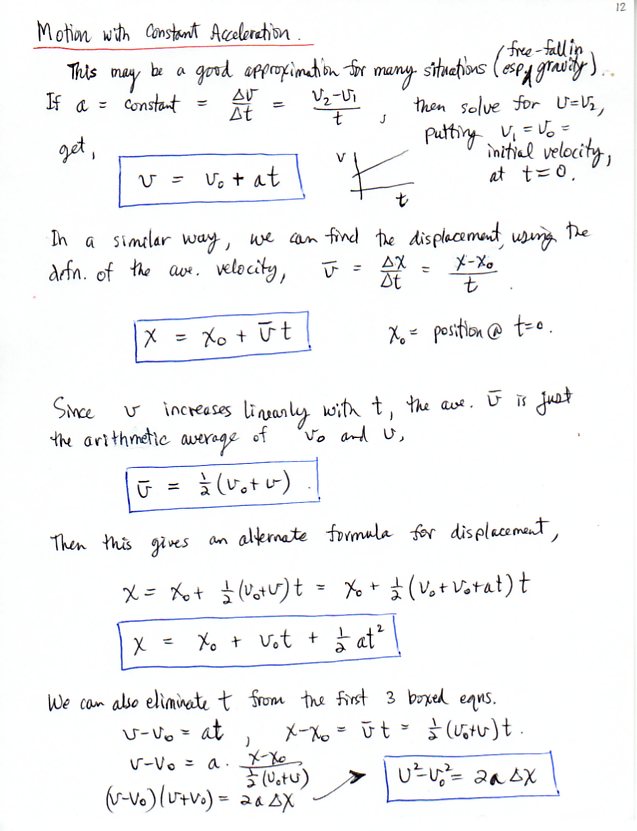 12
Motion with Constant Acceleration.
This may be a good approximation for many situations (esp. free-fall in gravity).
If a = constant = Δv/Δt = (v₂-v₁)/t , then solve for v=v₂,
putting v₁ = v₀ =
initial velocity,
at t=0.
get,
v = v₀ + at
v
t
In a similar way, we can find the displacement, using the
defn. of the ave. velocity, v̄ = Δx/Δt = (x-x₀)/t .
x = x₀ + v̄t
x₀ = position @ t=0.
Since v increases linearly with t, the ave. v̄ is just
the arithmetic average of v₀ and v,
v̄ = ½(v₀+v) .
Then this gives an alternate formula for displacement,
x = x₀ + ½(v₀+v)t = x₀ + ½(v₀+v₀+at)t
x = x₀ + v₀t + ½at²
We can also eliminate t from the first 3 boxed eqns.
v-v₀ = at , x-x₀ = v̄t = ½(v₀+v)t.
v-v₀ = a · (x-x₀)/(½(v₀+v))
(v-v₀)(v+v₀) = 2aΔx → v²-v₀² = 2aΔx